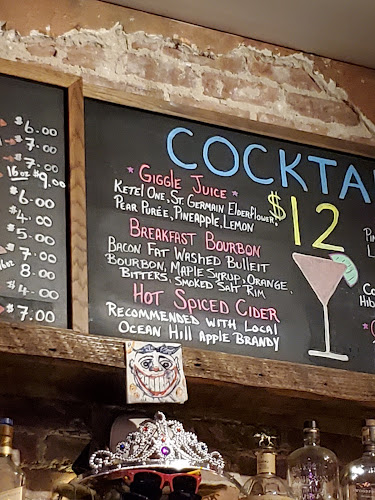 $6.00
$7.00
$7.00
16oz $9.00
$6.00
$4.00
$5.00
$7.00
$8.00
$4.00
$7.00
COCKTA
$12
* GIGGLE JUICE *
KETEL ONE, ST. GERMAIN ELDERFLOWER,
PEAR PURÉE, PINEAPPLE, LEMON
BREAKFAST BOURBON
BACON FAT WASHED BULLEIT
BOURBON, MAPLE SYRUP, ORANGE
BITTERS, SMOKED SALT RIM
HOT SPICED CIDER
RECOMMENDED WITH LOCAL
OCEAN HILL APPLE BRANDY